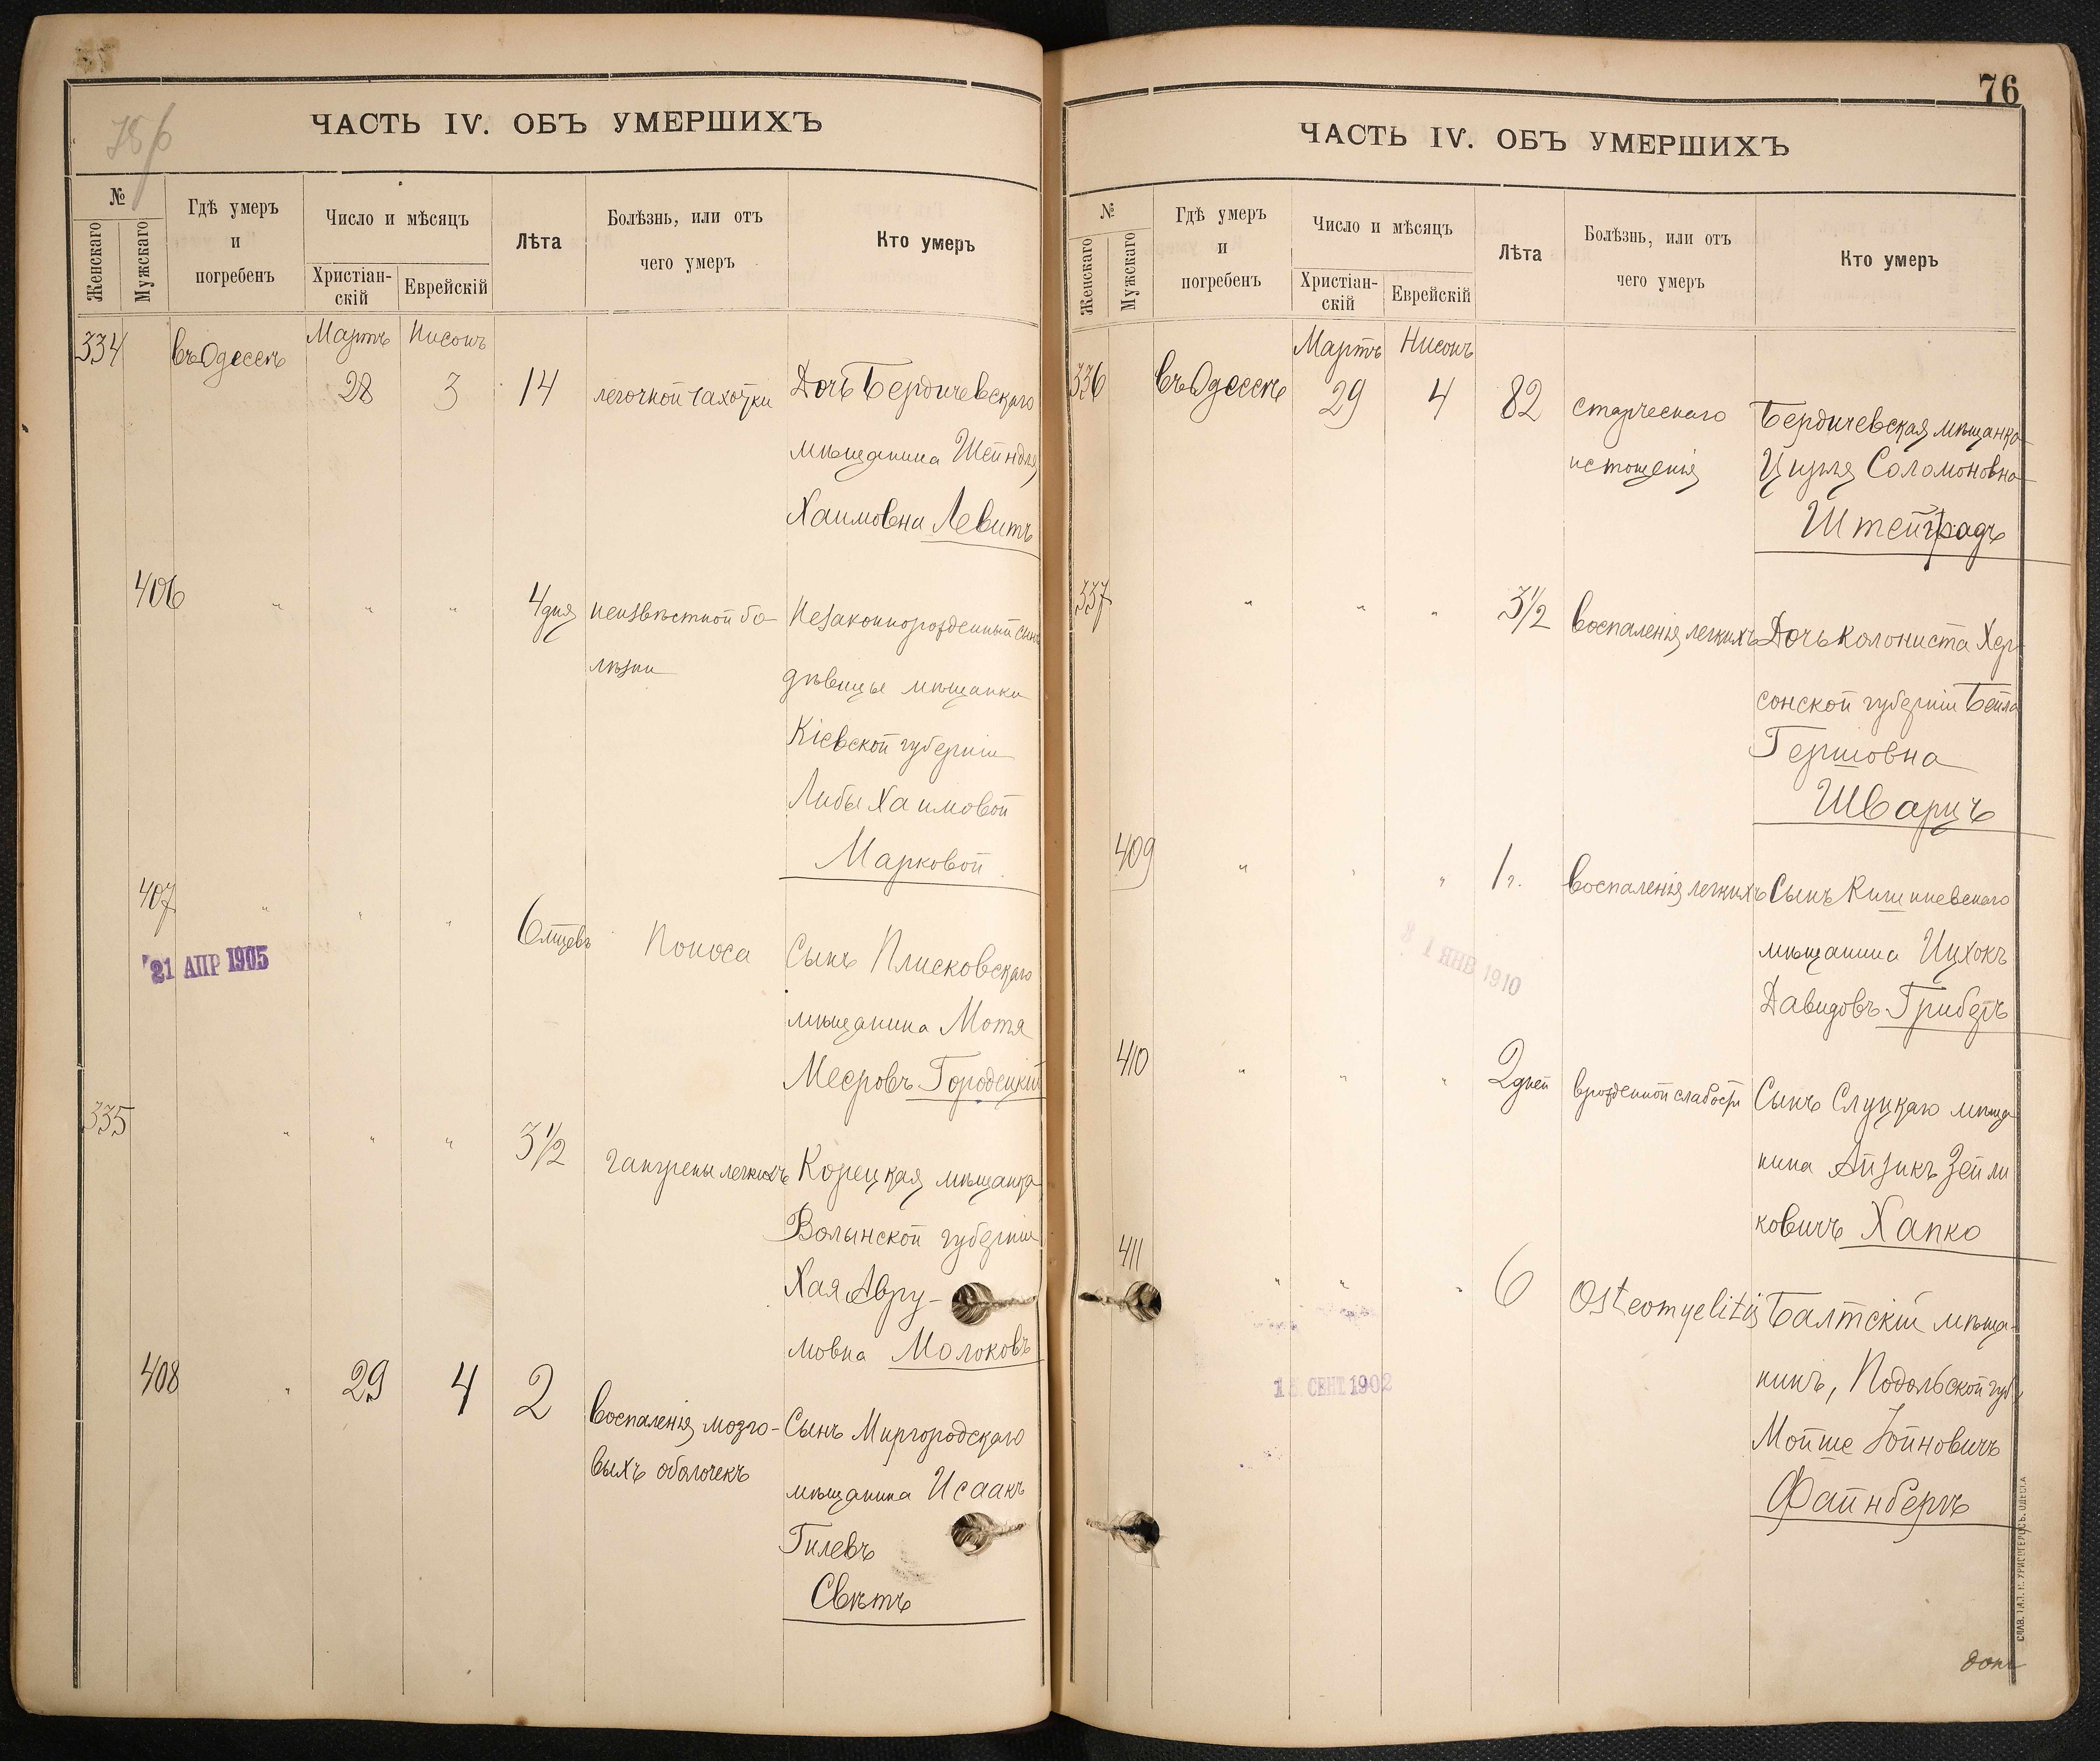 78 б
ЧАСТЬ IV. ОБЪ УМЕРШИХЪ
№
Женскаго
Мужскаго
Гдѣ умеръ
и
погребенъ
Число и мѣсяцъ
Христіан-
скій
Еврейскій
Лѣта
Болѣзнь, или отъ
чего умеръ
Кто умеръ
Мартъ Нисонъ
334 въ Одессѣ 28 3 14 легочной чахотки Дочь Бердичевскаго
мѣщанина Шейндля
Хаимовна Левитъ
406 " " " 4 дня неизвѣстной бо- Незаконнорожденный сынъ
лѣзни
дѣвицы мѣщанки
Кіевской губерніи
Либы Хаимовой
Марковой
407 " " " 6 мцевъ Поноса Сынъ Плисковскаго
21 АПР 1905
мѣщанина Мотя
Мееровъ Городецкій
335 " " " 3½ гангрены легкихъ Корецкая мѣщанка
Волынской губерніи
Хая Авру-
мовна Молоковъ
408 " 29 4 2 воспаленія мозго- Сынъ Миргородскаго
выхъ оболочекъ мѣщанина Исаакъ
Гилевъ
Свѣтъ
76
ЧАСТЬ IV. ОБЪ УМЕРШИХЪ
№
Женскаго
Мужскаго
Гдѣ умеръ
и
погребенъ
Число и мѣсяцъ
Христіан-
скій
Еврейскій
Лѣта
Болѣзнь, или отъ
чего умеръ
Кто умеръ
Мартъ Нисонъ
336 въ Одессѣ 29 4 82 старческаго Бердичевская мѣщанка
истощенія Ципля Соломоновна
Штейнградъ
337 " " " 3½ воспаленія легкихъ Дочь колониста Хер-
сонской губерніи Бейла
Гершовна
Шварцъ
409 " " " 1 г. воспаленія легкихъ Сынъ Кишиневскаго
мѣщанина Ицхокъ
1 ЯНВ 1910
Давидовъ Гриберъ
410 " " " 2 дней врожденной слабости Сынъ Слуцкаго мѣща
нина Айзикъ Зейли
ковичъ Хапко
411 " " " 6 Osteomyelitis Балтскій мѣща-
СЕНТ 1902
нинъ, Подольской губ.
Мойше Іойновичъ
Файнбергъ
СЛАВ. ТИП. Н. ХРИСОГЕЛОСЪ. ОДЕССА